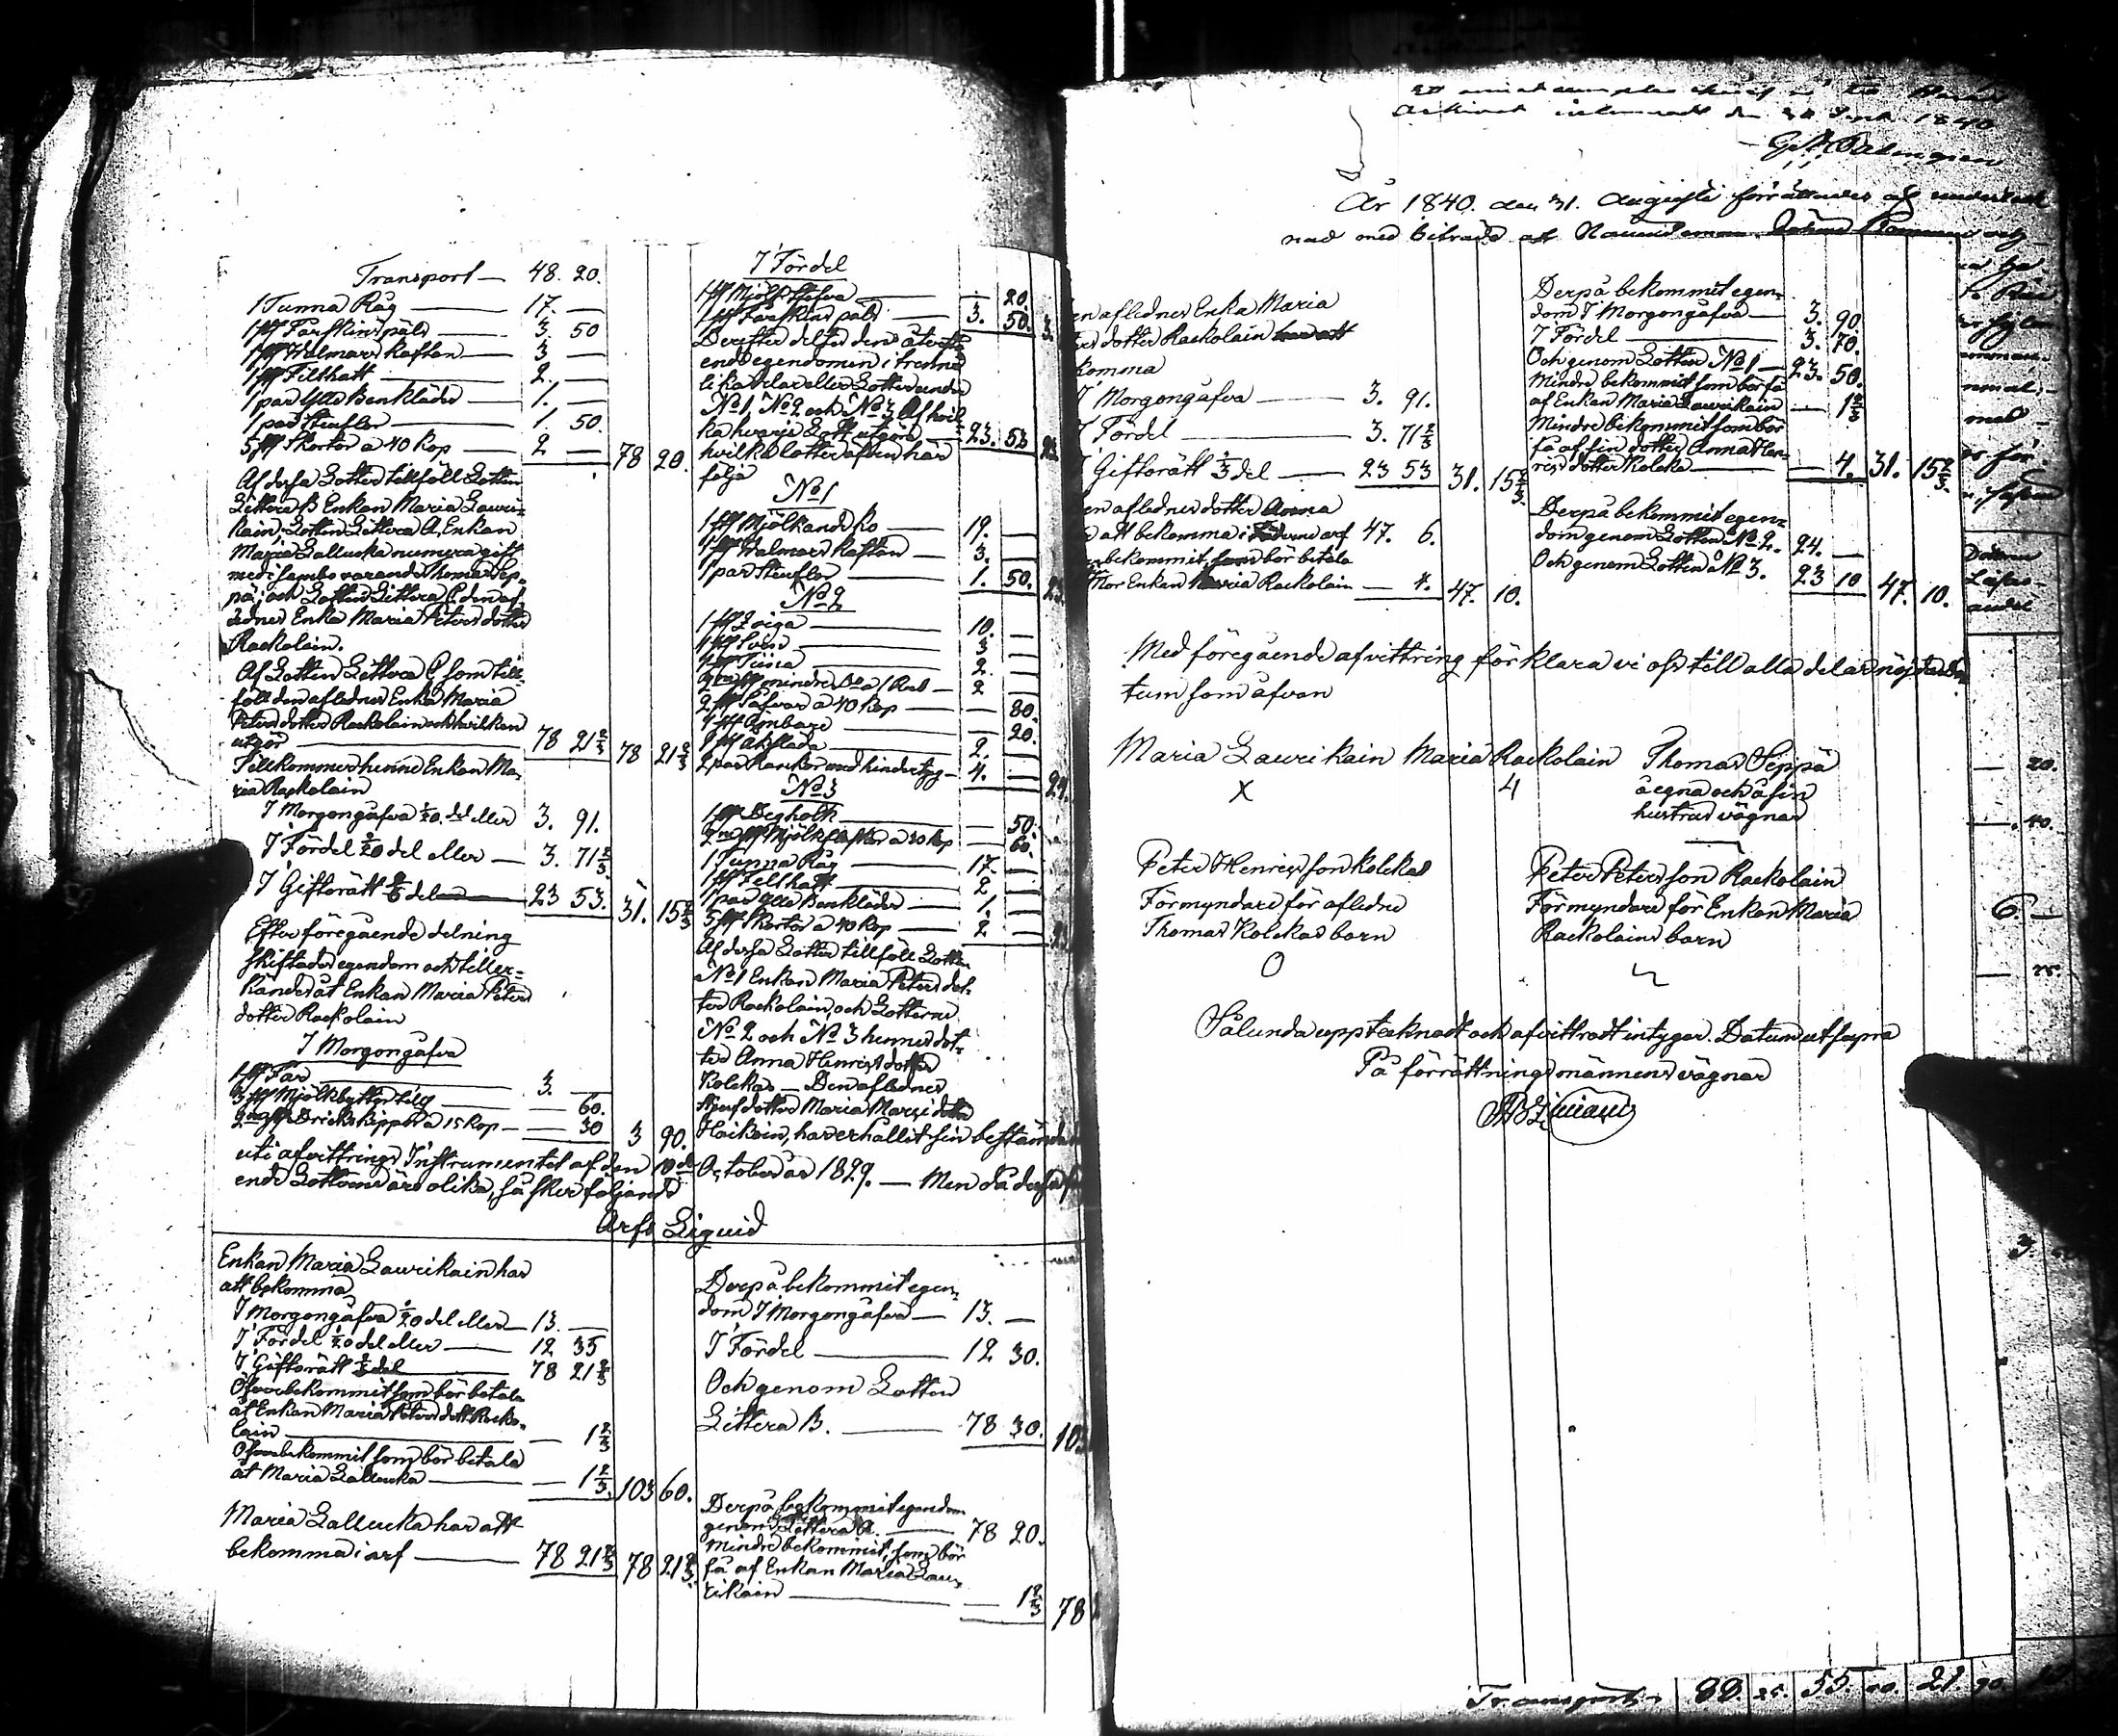 Transport — 48. 20.
1 Tunna Råg — 17. —
1 st Fårskins päls — 3. 50
1 st Walmars Kaftan — 3 —
1 st Filthatt — 2. —
1 par Ylle Benkläder — 1. —
1 par Stöuflor — 1. 50.
5 st Skortor a 40 Kop — 2 — 78 20.
Af dessa Lotter tillföll Lotten
Littera B Enkan Maria Lauri-
kain, Lotten Littera A, Enkan
Maria Lallucka numera gift
med Thomas Sep-
pä, och Lotten Littera C den af-
ledner Enka Maria Peters dotter
Rackolain.
Af Lotten Littera C som till-
föll den afledner Enka Maria
Peters dotter Rackolain och hvilken
utgör — 78 21 2/3 78 21 2/3
Tillkommer henne Enkan Ma-
ria Rackolain
I Morgongåfva 1/20 del eller 3. 91.
I Fördel 1/20 del eller — 3. 71 2/3
I Giftorätt 1/3 del — 23 53. 31. 15 2/3
Efter föregående delning
skiftades egendom och tiller-
kändes åt Enkan Maria Peters
dotter Rackolain
I Morgongåfva
1 st Får — 3. —
3 st Mjölkbyttor — 60.
2 st Dricks kippor a 15 Kop — 30 3 90.
I Fördel
— 20.
1 st Fårskins päls — 3. 50.
Derefter deltes den återstå-
ende egendomen i trenne
lika delar eller Lotter under
No 1, No 2 och No 3 Af hvil-
ka hvarje Lott utgör — 23. 53
hvilka lotter äfven här
följa
No 1
1 st Mjölkande Ko — 19. —
1 st Walmars Kaftan — 3. —
1 par Stöuflor — 1. 50.
No 2
1 st Qviga — 10. —
1 st Svin — 3 —
1 st Tiina — 2. —
2 st mindre Do a 1 Rub — 2 —
2 st Såfvar a 40 Kop — — 80.
1 st Ämbare — — 20.
1 st Åkslada — 2. —
4. —
No 3
1 st Deghoth — — 50.
2 st Mjölkflaskor a 30 Kop — 60.
1 Tunna Råg — 17. —
1 st Filthatt — 2. —
1 par Ylle Benkläder — 1. —
5 st Skortor a 40 Kop — 2 —
Af dessa Lotter tillföll Lotten
No 1 Enkan Maria Peters dot-
ter Rackolain, och Lotterne
No 2 och No 3 hennes dot-
ter Anna Henrics dotter
Kolckas — Den afledner
Styfdotter Maria Marci dotter
Haikain, har erhållit sin bestämda
uti afvittrings Instrumentet af den 10de October år 1829. — Men då dessa
ende Lotterne äro olika, så sker följande
Arfs Liquid
Enkan Maria Laurikain har
att bekomma
I Morgongåfva 1/20 del eller — 13. —
I Fördel 1/20 del eller — 12 35
I Giftorätt 1/3 del — 78 21 2/3
Öfverbekommit som bör betala
åt Enkan Maria Peters dott. Racko-
lain — — 1 2/3
Öfverbekommit som bör betala
åt Maria Lallucka — — 1 2/3. 103 60.
Maria Lallucka har att
bekomma i arf — 78 21 2/3 78 21 2/3.
Derpå bekommit egen-
dom I Morgongåfva — 13. —
I Fördel — 12 30.
Och genom Lotten
Littera B. — 78 30. 103
Derpå bekommit egendom
genom Littera A. — 78 20.
Mindre bekommit, som bör
få af Enkan Maria Lau-
rikain — — 1 2/3 78
1840
År 1840. den 31. Augusti förrättades af underteck
nad med biträde af Nämndeman
en afledner Enka Maria
dotter Rackolain har att
komma
I Morgongåfva — 3. 91.
I Fördel — 3. 71 2/3
I Giftorätt 1/3 del — 23 53 31. 15 2/3.
en afledner dotter Anna
att bekomma i arf 47. 6.
bekommit, som bör betala
Mor Enkan Maria Rackolain — 4. 47. 10.
Derpå bekommit egen-
dom I Morgongåfva — 3. 90.
I Fördel — 3. 70.
Och genom Lotten No 1 — 23. 50.
Mindre bekommit som bör få
af Enkan Maria Laurikain — 1 2/3
Mindre bekommit som bör
få af sin dotter Anna Hen-
rics dotter Kolcka — — 4. 31. 15 2/3.
Derpå bekommit egen-
dom genom Lotten No 2. 24. —
Och genom Lotten No 3. 23 10 47. 10.
Med föregående afvittring förklara vi oss till alla delar nöjda
tum som åfvan
Maria Laurikain Maria Rackolain Thomas Seppä
X 4 å egna och å sin
hustrus vägnar
Peter Henrics son Kolckas
Förmyndare för afledne
Thomas Kolckas barn
O
Peter Peters son Rackolain
Förmyndare för Enkan Maria
Rackolains barn
Sålunda upptecknadt och afvittradt intygar. Datum ut supra
På förrättnings männens vägnar
Transport 88. 25. 55. 21 90.